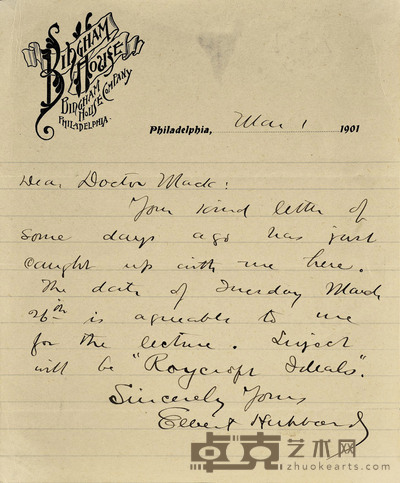 Bingham House
Bingham
House Company
Philadelphia.
Philadelphia, Mar 1 1901
Dear Doctor Mack:
Your kind letter of
some days ago has just
caught up with me here.
The date of Tuesday March
26th is agreeable to me
for the lecture. Subject
will be "Roycroft Ideals".
Sincerely Yours
Elbert Hubbard
卓克艺术网
zhuokearts.com